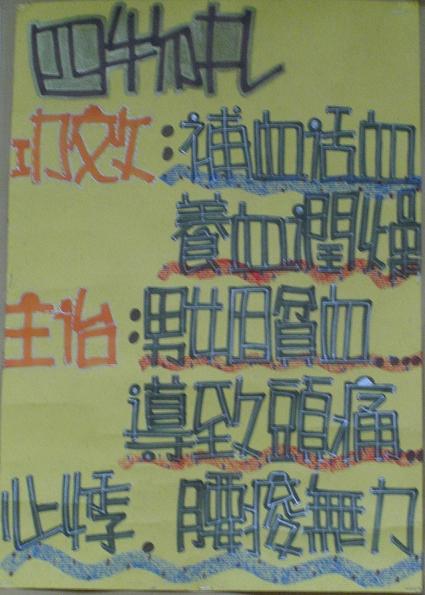 四物
功效:補血活血
養血潤燥
主治:男女因貧血
導致頭痛
心悸.腰痠無力